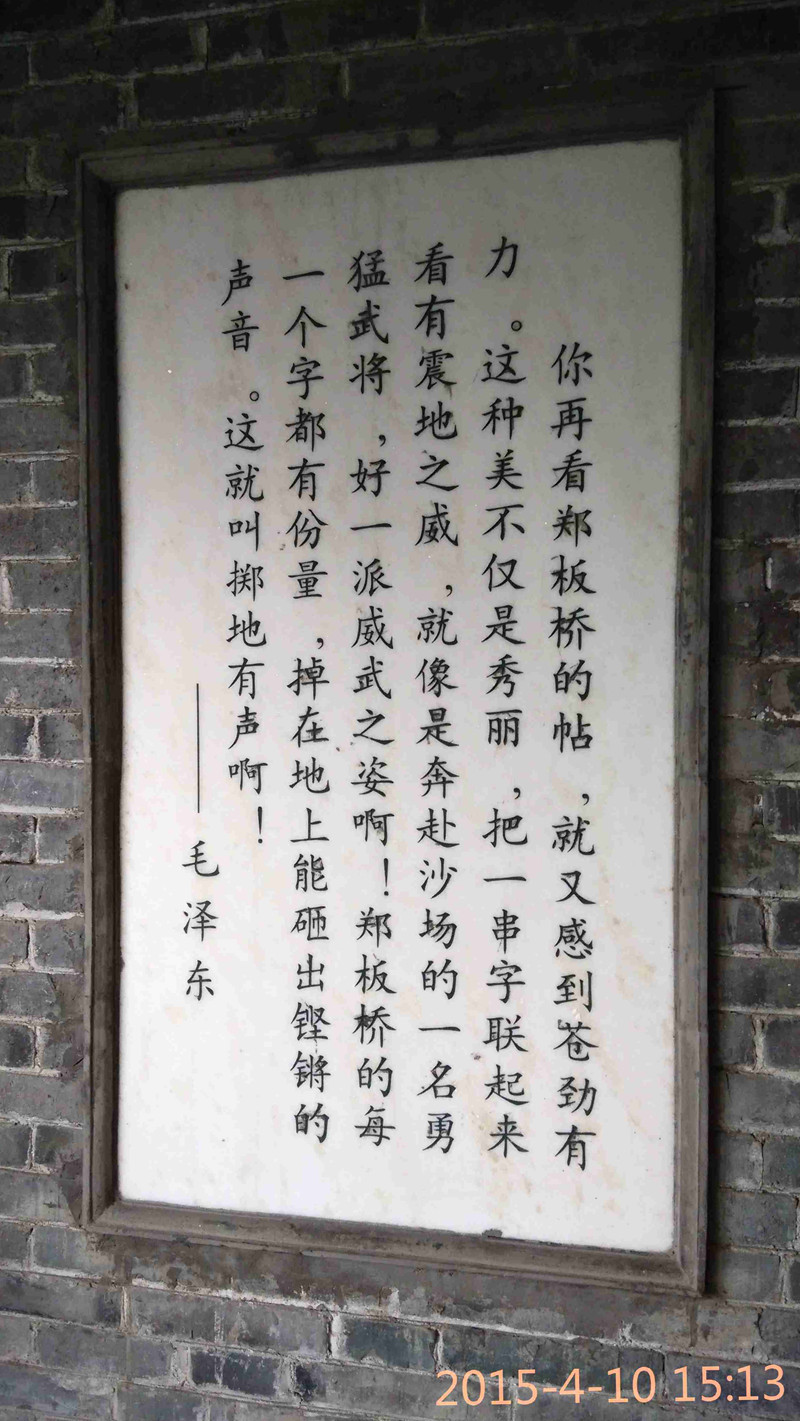 你再看郑板桥的帖，就又感到苍劲有
力。这种美不仅是秀丽，把一串字联起来
看有震地之威，就像是奔赴沙场的一名勇
猛武将，好一派威武之姿啊！郑板桥的每
一个字都有份量，掉在地上能砸出铿锵的
声音。这就叫掷地有声啊！
——毛泽东
2015-4-10 15:13